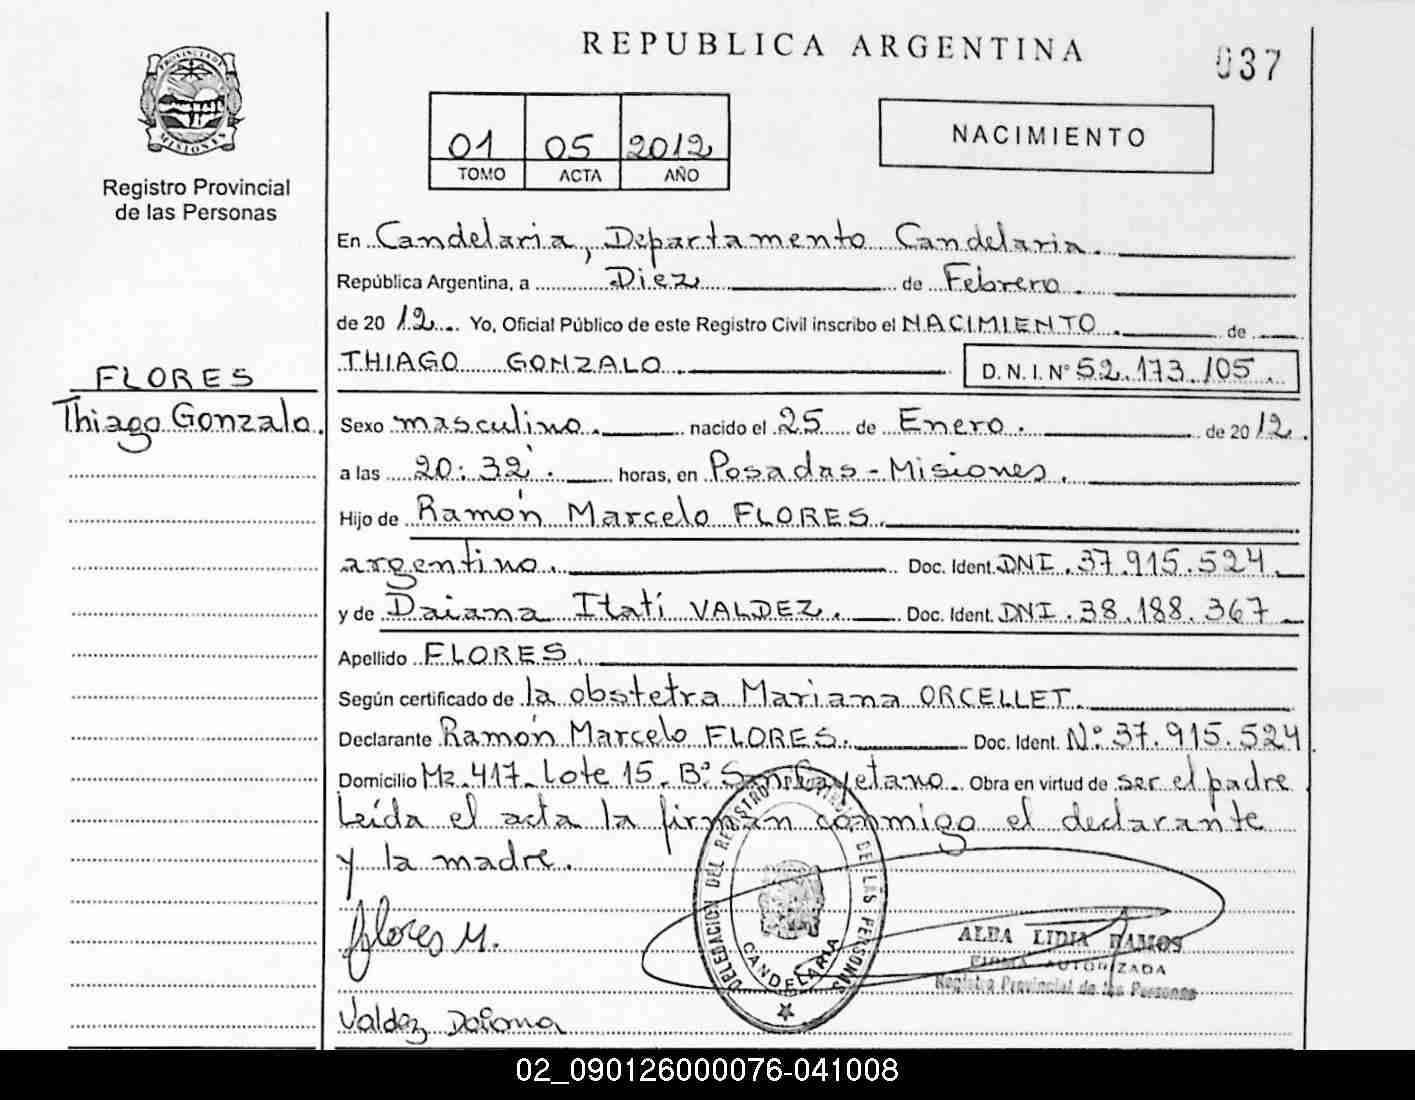 REPUBLICA ARGENTINA
037
PROVINCIA DE
MISIONES
Registro Provincial
de las Personas
01 05 2012
TOMO ACTA AÑO
NACIMIENTO
En Candelaria, Departamento Candelaria.
República Argentina, a Diez de Febrero.
de 2012. Yo, Oficial Público de este Registro Civil inscribo el NACIMIENTO. de
THIAGO GONZALO. D.N.I. Nº 52.173.105.
FLORES
Thiago Gonzalo.
Sexo masculino. nacido el 25 de Enero. de 2012.
a las 20:32'. horas, en Posadas - Misiones.
Hijo de Ramón Marcelo FLORES.
argentino. Doc. Ident. DNI. 37.915.524.
y de Daiana Itatí VALDEZ. Doc. Ident. DNI. 38.188.367
Apellido FLORES.
Según certificado de la obstetra Mariana ORCELLET.
Declarante Ramón Marcelo FLORES. Doc. Ident. Nº. 37.915.524.
Domicilio Mz. 417. Lote 15. Bº San Cayetano. Obra en virtud de ser el padre.
Leída el acta la firman conmigo el declarante
y la madre.
Flores M.
DELEGACION DEL REGISTRO PROVINCIAL DE LAS PERSONAS
CANDELARIA
ALBA LIDIA RAMOS
FIRMA AUTORIZADA
Registro Provincial de las Personas
Valdez Daiana
02_090126000076-041008